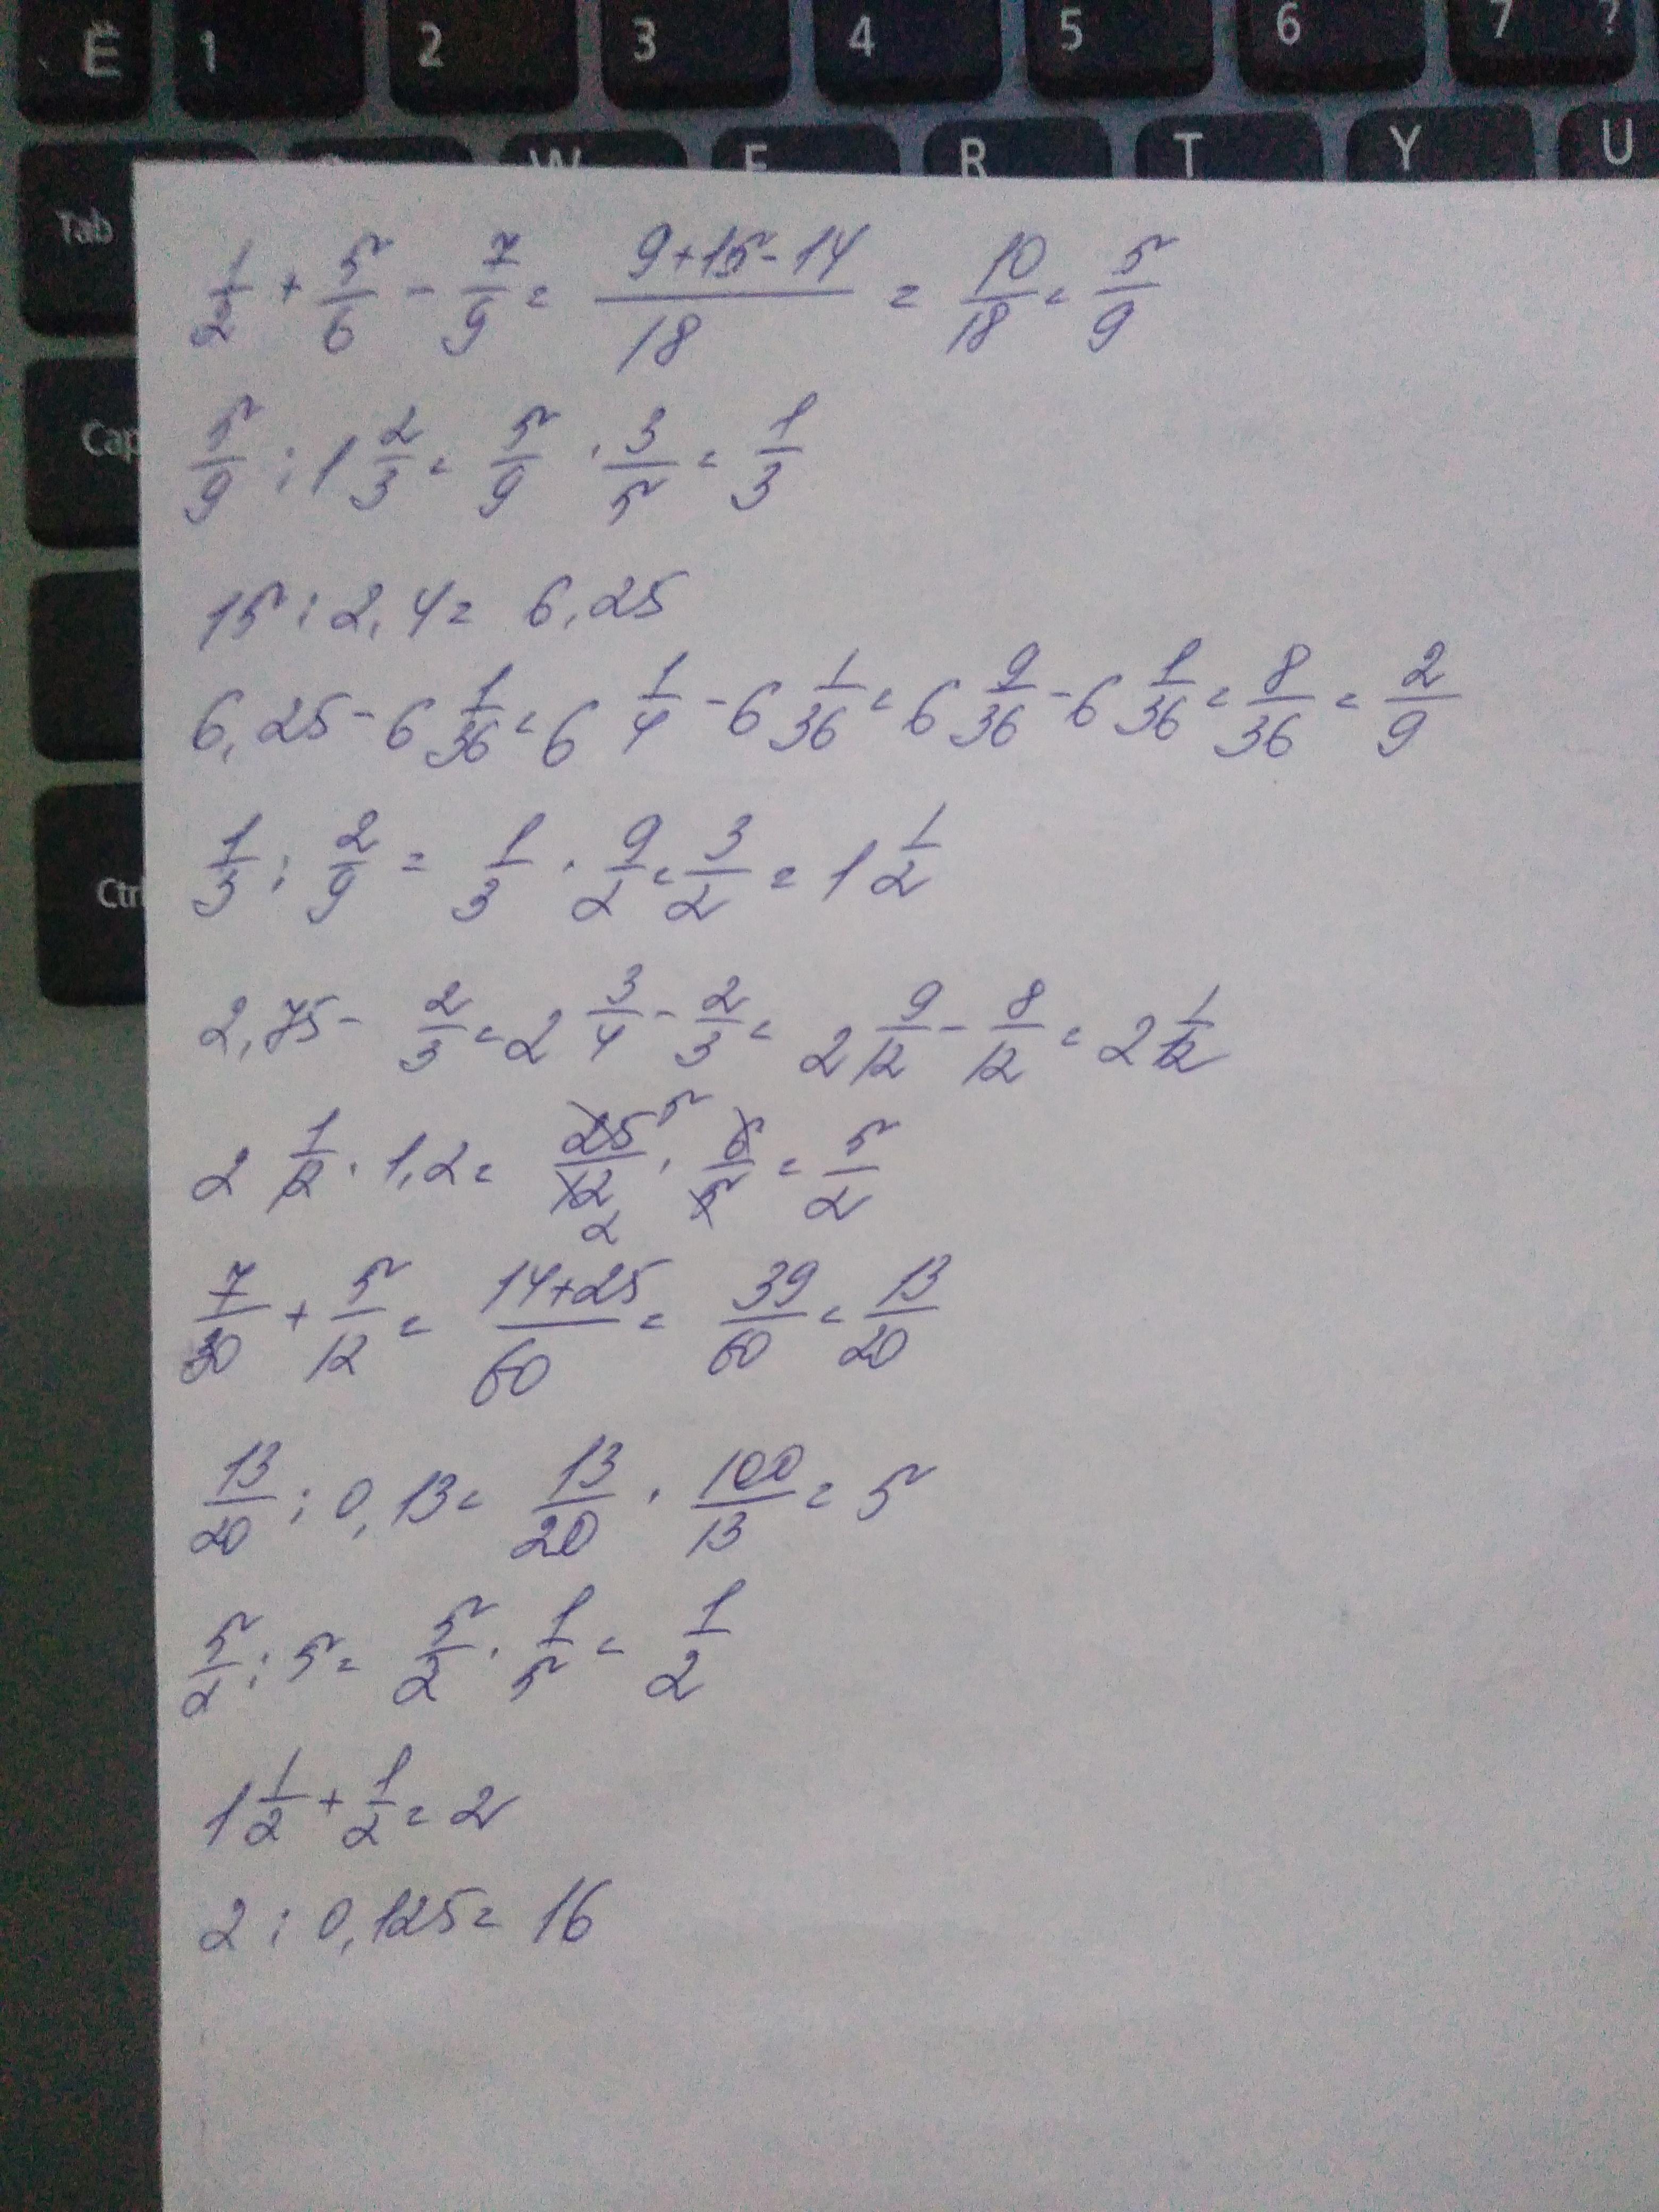 Ё 1 2 3 4 5 6 7 ?
W E R T Y U
Tab
Cap
Ctrl
1/2 + 5/6 - 7/9 = (9+15-14)/18 = 10/18 = 5/9
5/9 : 1 2/3 = 5/9 · 3/5 = 1/3
15 : 2,4 = 6,25
6,25 - 6 1/36 = 6 1/4 - 6 1/36 = 6 9/36 - 6 1/36 = 8/36 = 2/9
1/3 : 2/9 = 1/3 · 9/2 = 3/2 = 1 1/2
2,75 - 2/3 = 2 3/4 - 2/3 = 2 9/12 - 8/12 = 2 1/12
2 1/12 · 1,2 = 25/12 5 2 · 6/5 = 5/2
7/30 + 5/12 = (14+25)/60 = 39/60 = 13/20
13/20 : 0,13 = 13/20 · 100/13 = 5
5/2 : 5 = 5/2 · 1/5 = 1/2
1 1/2 + 1/2 = 2
2 : 0,125 = 16